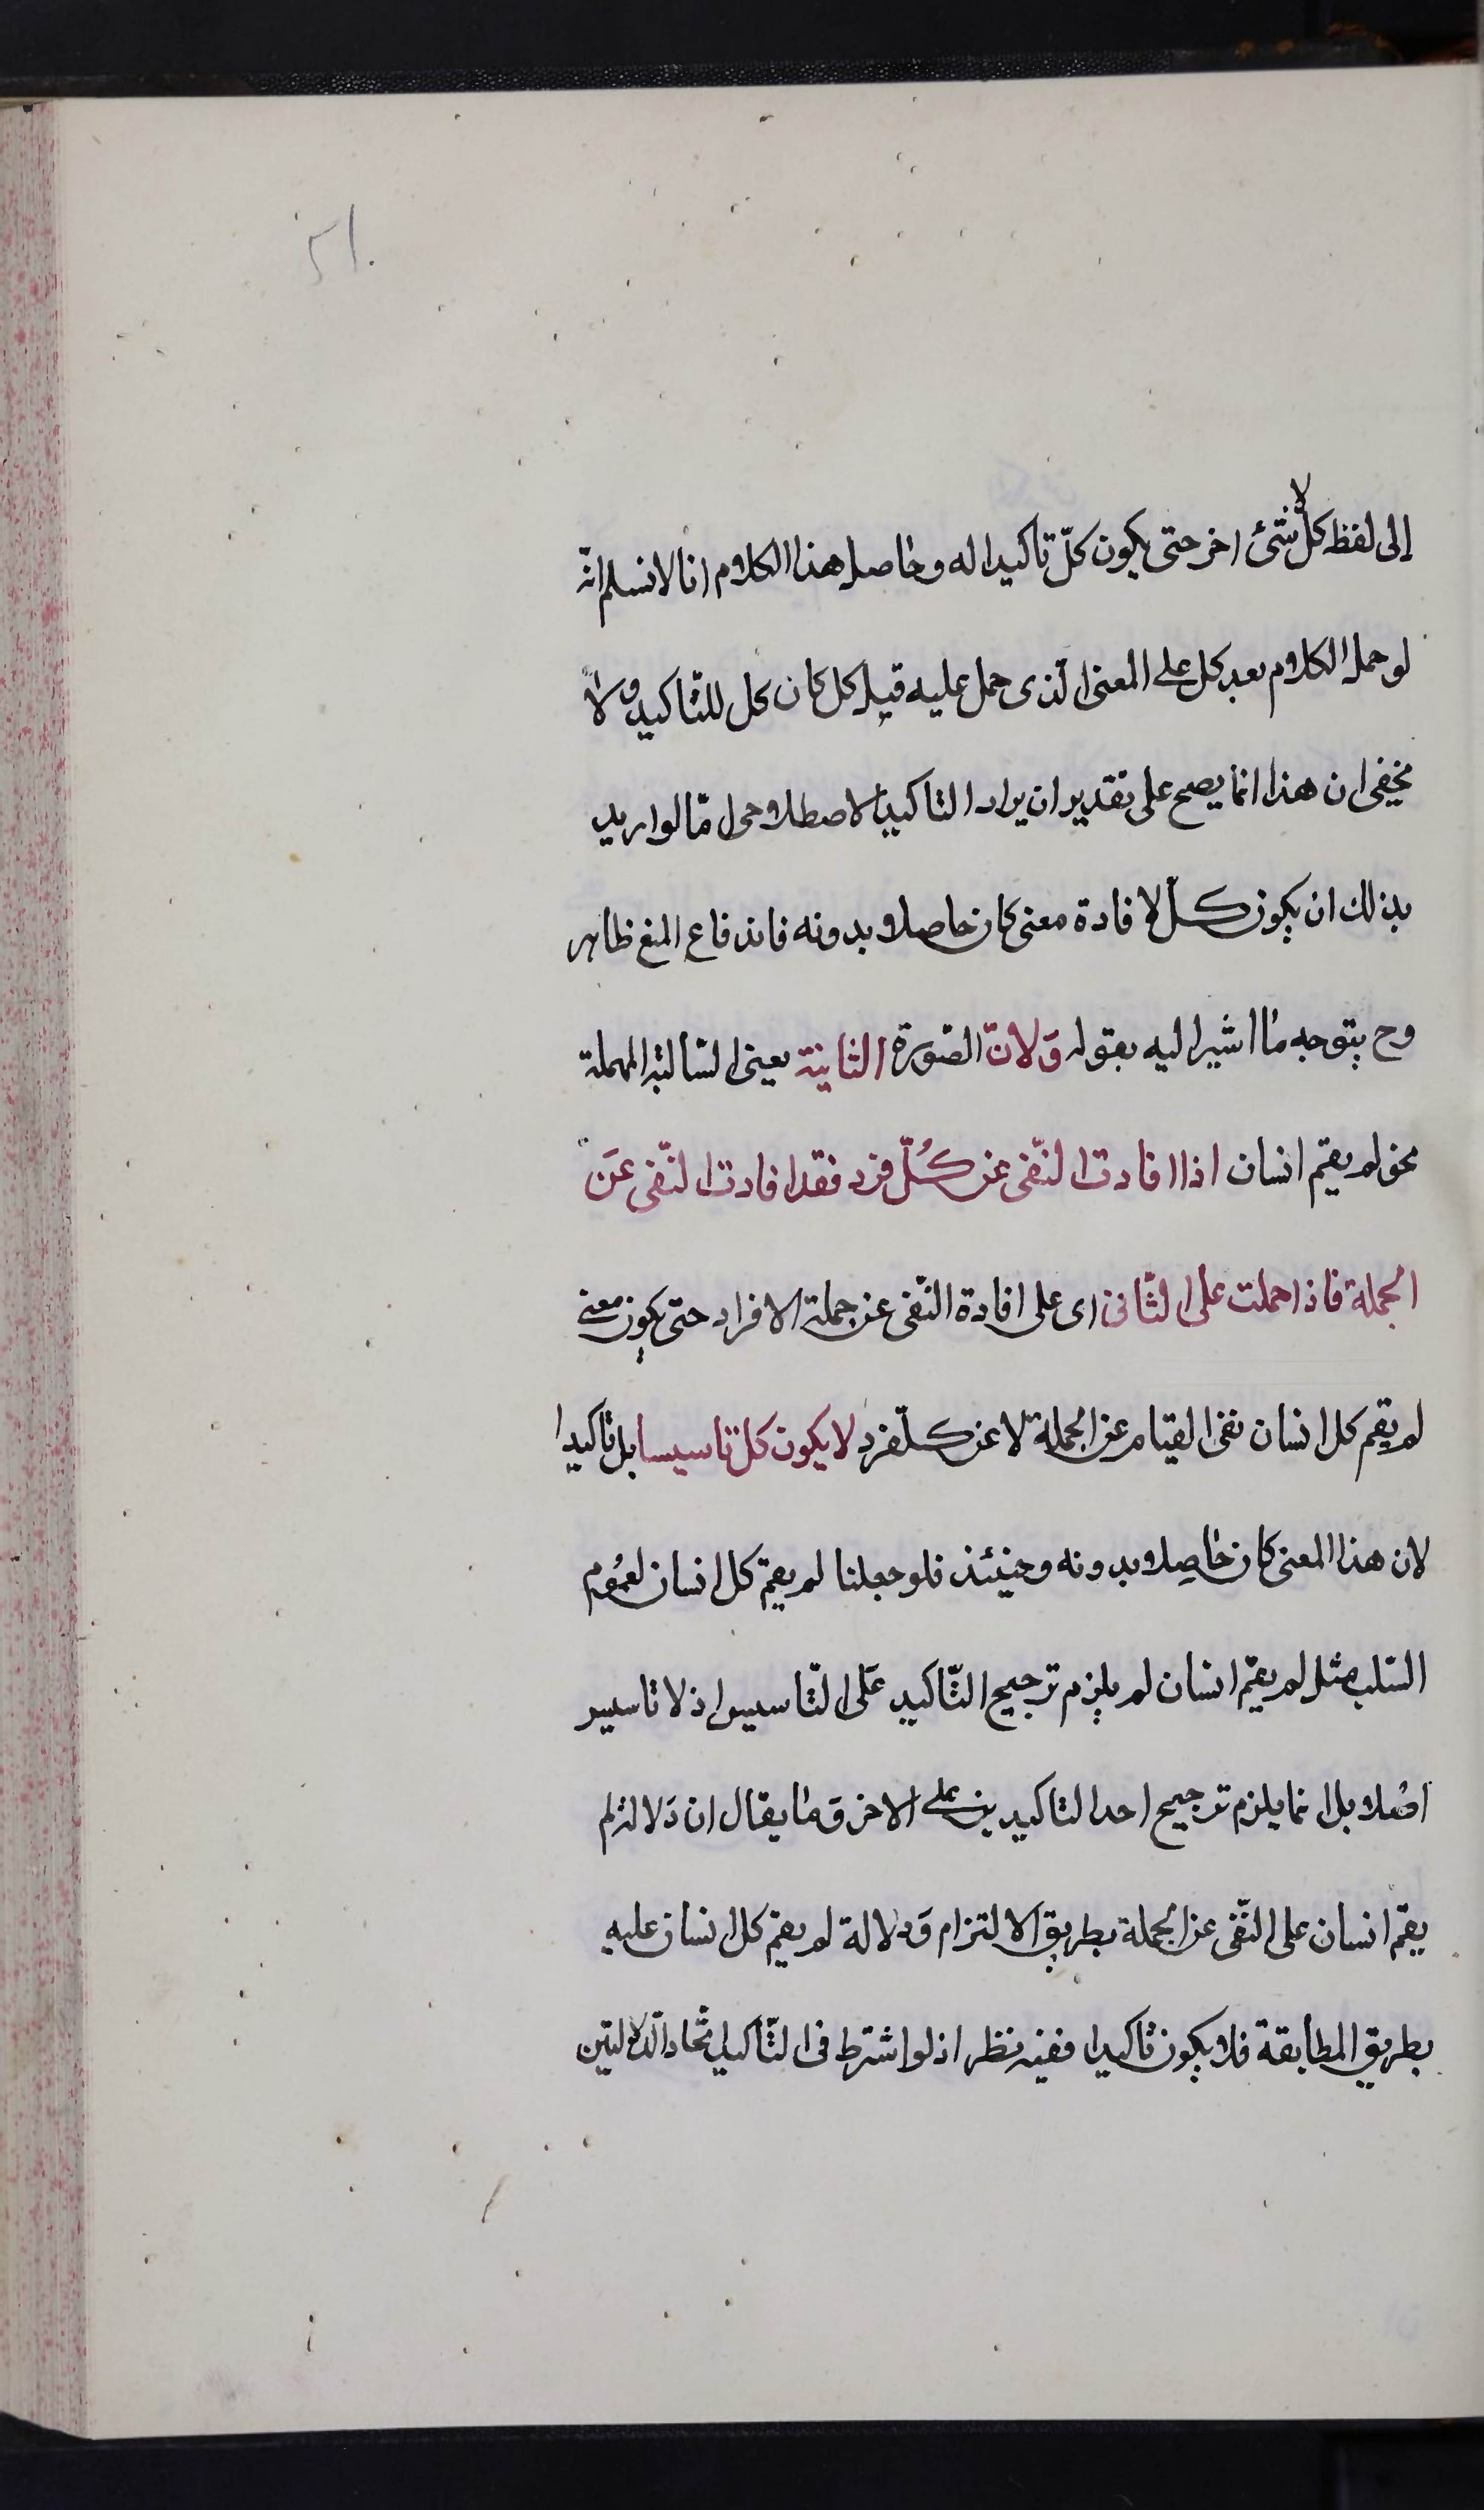 ٥١٠
إلى لفظ كلّ لا شئ اخر حتى يكون كلّ تاكيدا له وحاصل هذا الكلام انا لا نسلم انّه
لو حمل الكلام بعد كل على المعنى الذى حمل عليه قبل كل كان كل للتّاكيد ولا
يخفى ان هذا انما يصح على تقدير ان يراد التاكيد الاصطلاحى امّا لو اريد
بذلك ان يكون كلّ لافادة معنى كان حاصلا بدونه فاندفاع المنع ظاهر
وح يتوجه ما اشير اليه بقوله وَلانّ الصّورة الثانية يعنى السّالبة المهملة
نحو لم يقم انسان اذا افادت النّفى عن كُلّ فرد فقد افادت النّفى عَن
الجملة فاذا حملت على الثّانى اى على افادة النّفى عن جملة الافراد حتى يكون معنى
لم يقم كل انسان نفى القيام عن الجملة لا عن كلّ فرد لا يكون كل تاسيسا بل تاكيدا
لان هذا المعنى كان حاصِلا بدونه وحينئذ فلو جعلنا لم يقم كل انسان لعُمُوم
السّلب مثل لم يقم انسان لم يلزم ترجيح التّاكيد عَلى التّاسيس اذ لا تاسيس
اصُلا بل انما يلزم ترجيح احد التاكيدين على الاخر وَما يقال ان دَلالة لم
يقم انسان على النّفى عن الجملة بطريق الالتزام وَدلالة لم يقم كل انسان عليه
بطريق المطابقة فلا يكون تاكيدا ففيه نظر اذ لو اشترط فى التّاكيد اتّحاد الدّلالتين